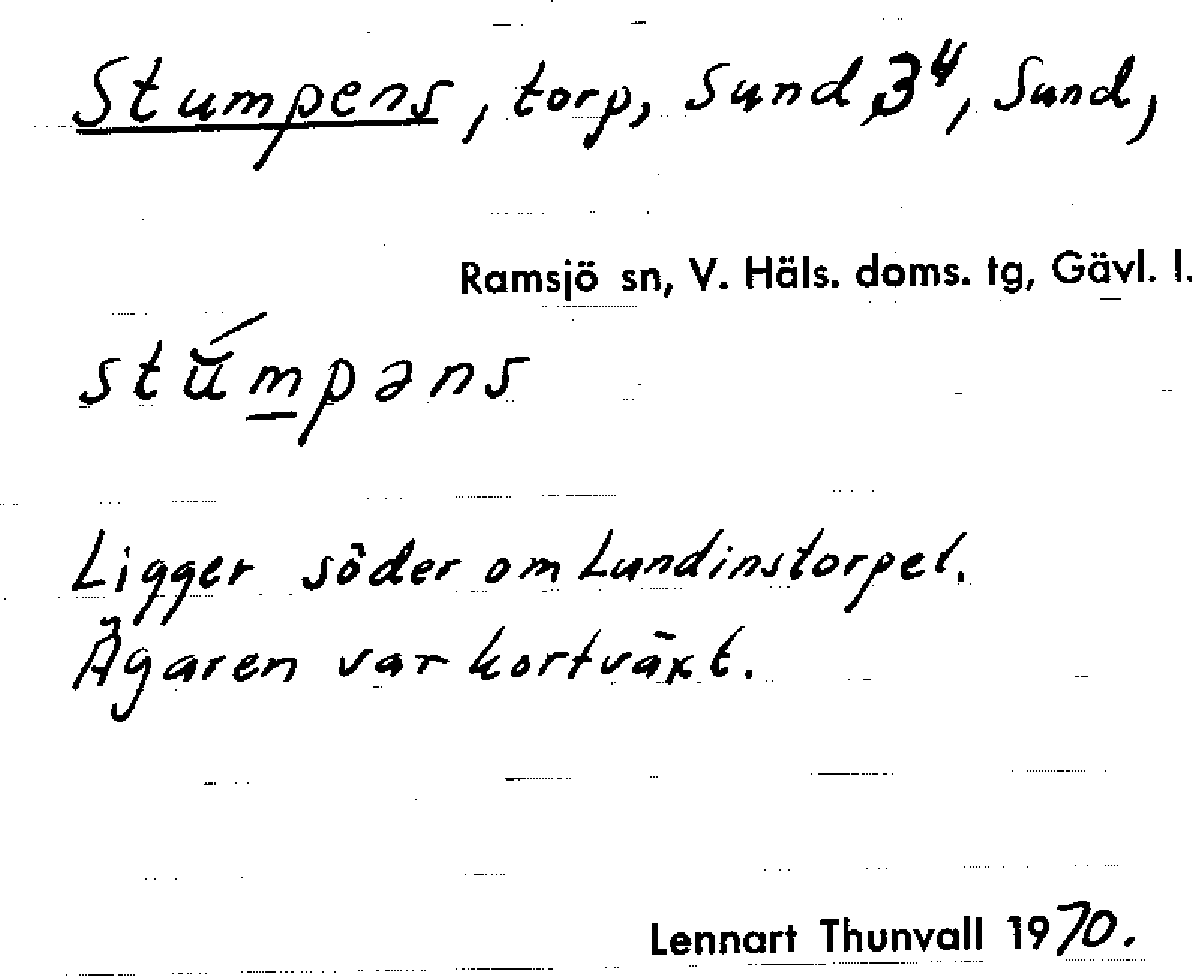 Stumpens, torp, Sund 3⁴, Sund,
Ramsjö sn, V. Häls. doms. tg, Gävl. l.
stŭ́mpəns
Ligger söder om Lundinstorpet.
Ägaren var kortväxt.
Lennart Thunvall 1970.